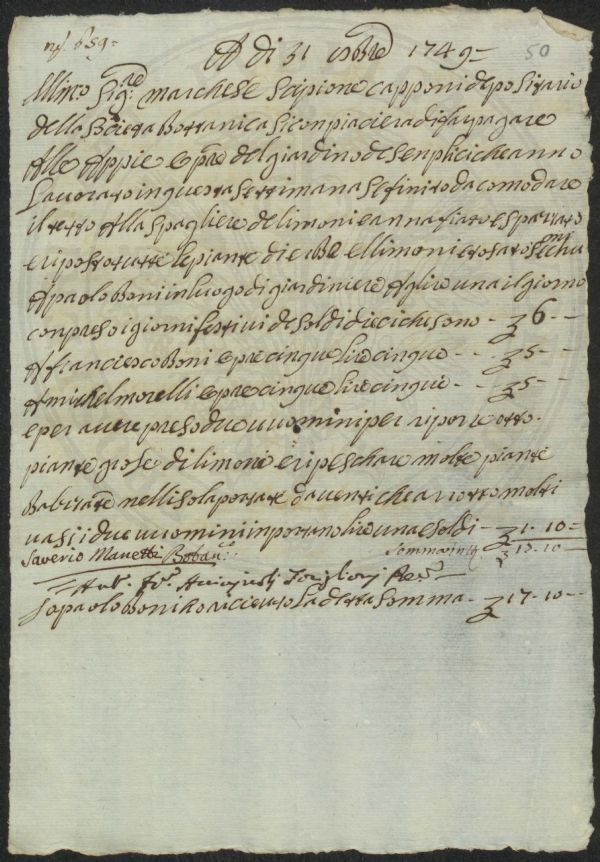 A di 31 8bre 1749 50
Illmo. Sigre. marchese Scipione capponi depositario
della Societa Bottanica si conpiaciera di fa pagare
Alle Appie opre del giardino de senplici che anno
Lavorato in questa settimana se finito da comodare
il tetto Alla Spagliere de limoni e anna fiato e spazzato
e riposto tutte le piante di erbe e llimoni e tosato
A paolo Boni in luogo di giardiniere A lire una il giorno
conpreso i giorni festivi de soldi dieci che sono - 6 -
A franciesco Boni opre cinque lire cinque - - 5 -
A michel morelli opre cinque lire cinque - - 5 -
e per avere preso due uomini per riporre otto
piante grose di limoni e ripeschare molte piante
Balzate nelli sola portate da venti che a rotto molti
vasi i due uomini inportano lire una e soldi - 1 - 10 -
Saverio Manetti Sommano 17 - 10 -
Io paolo Boni ho riceuto La detta Somma - 17 - 10 -